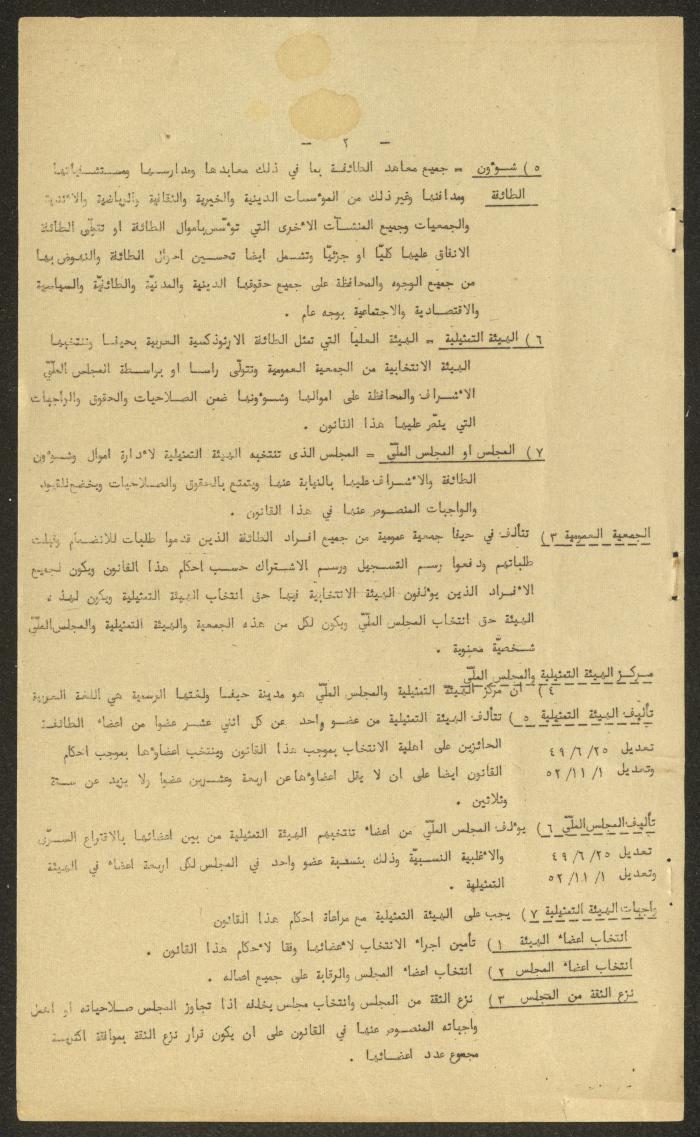 - ٢ -
٥) شوٴون = جميع معاهد الطائفة بما في ذلك معابدها ومدارسها ومستشفياتها
الطائفة ومدافنها وغير ذلك من الموٴسسات الدينية والخيرية والثقافية والرياضية والاٴندية
والجمعيات وجميع المنشآت الاٴخرى التي توٴسّس باموال الطائفة او تتولّى الطائفة
الانفاق عليها كليّا او جزئيّا وتشمل ايضا تحسين احوال الطائفة والنهوض بها
من جميع الوجوه والمحافظة على جميع حقوقها الدينية والمدنيّة والطائفيّة والسياسية
والاقتصادية والاجتماعية بوجه عام .
٦) الهيئة التمثيلية = الهيئة العليا التي تمثل الطائفة الارثوذكسية العربية بحيفا وتنتخبها
الهيئة الانتخابية من الجمعية العمومية وتتولّى راسا او بواسطة المجلس الملّيّ
الاٴشراف والمحافظة على اموالها وشوٴونها ضمن الصلاحيات والحقوق والواجبات
التي ينصّ عليها هذا القانون .
٧) المجلس او المجلس الملّيّ = المجلس الذى تنتخبه الهيئة التمثيلية لاٴدارة اموال وشوٴون
الطائفة والاٴشراف عليها بالنيابة عنها ويتمتع بالحقوق والصلاحيات ويخضع للقيود
والواجبات المنصوص عنها في هذا القانون .
الجمعية العمومية ٣) تتألف في حيفا جمعية عمومية من جميع افراد الطائفة الذين قدموا طلبات للانضمام وقبلت
طلباتهم ودفعوا رسم التسجيل ورسم الاشتراك حسب احكام هذا القانون ويكون لجميع
الاٴفراد الذين يوٴلفون الهيئة الانتخابية فيها حق انتخاب الهيئة التمثيلية ويكون لهذه
الهيئة حق انتخاب المجلس الملّيّ ويكون لكل من هذه الجمعية والهيئة التمثيلية والمجلس الملّيّ
شخصيّة معنوية .
مركز الهيئة التمثيلية والمجلس الملّيّ
٤) ان مركز الهيئة التمثيلية والمجلس الملّيّ هو مدينة حيفا ولغتها الرسمية هي اللغة العربية
تأليف الهيئة التمثيلية ٥) تتألف الهيئة التمثيلية من عضو واحد عن كل اثني عشر عضوا من اعضاء الطائفة
تعديل ٢٥/٦/٤٩ الحائزين على اهلية الانتخاب بموجب هذا القانون وينتخب اعضاوٴها بموجب احكام
وتعديل ١/١١/٥٢ القانون ايضا على ان لا يقل اعضاوٴها عن اربعة وعشرين عضوا ولا يزيد عن ستة
وثلاثين .
تأليف المجلس الملّيّ ٦) يوٴلف المجلس الملّيّ من اعضاء تنتخبهم الهيئة التمثيلية من بين اعضائها بالاقتراع السرّى
تعديل ٢٥/٦/٤٩ والاٴغلبية النسبيّة وذلك بنسبة عضو واحد في المجلس لكل اربعة اعضاء في الهيئة
وتعديل ١/١١/٥٢ التمثيلية .
واجبات الهيئة التمثيلية ٧) يجب على الهيئة التمثيلية مع مراعاة احكام هذا القانون
انتخاب اعضاء الهيئة ١) تأمين اجراء الانتخاب لاٴعضائها وفقا لاٴحكام هذا القانون .
انتخاب اعضاء المجلس ٢) انتخاب اعضاء المجلس والرقابة على جميع اعماله .
نزع الثقة من المجلس ٣) نزع الثقة من المجلس وانتخاب مجلس يخلفه اذا تجاوز المجلس صلاحياته او اهمل
واجباته المنصوص عنها في القانون على ان يكون قرار نزع الثقة بموافقة اكثرية
مجموع عدد اعضائها .